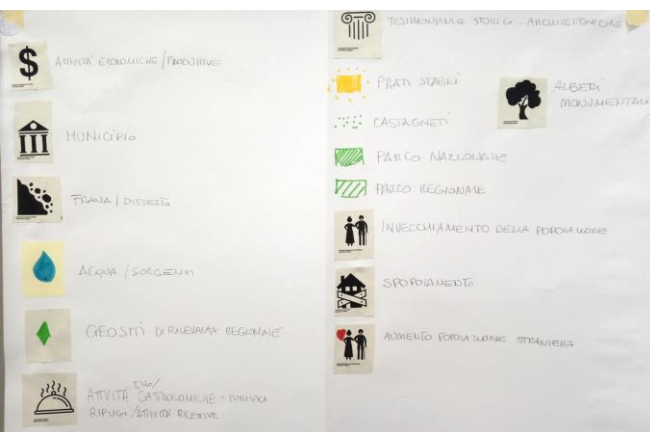 $ ATTIVITÀ ECONOMICHE / PRODUTTIVE
MUNICIPIO
FRANA / DISSESTO
ACQUA / SORGENTI
GEOSITI DI RILEVANZA REGIONALE
ATTIVITÀ ENO/GASTRONOMICHE -
RIFUGI / ATTIVITÀ RICETTIVE
TESTIMONIANZE STORICO - ARCHITETTONICHE
PRATI STABILI
ALBERI
MONUMENTALI
CASTAGNETI
PARCO NAZIONALE
PARCO REGIONALE
INVECCHIAMENTO DELLA POPOLAZIONE
SPOPOLAMENTO
AUMENTO POPOLAZIONE STRANIERA